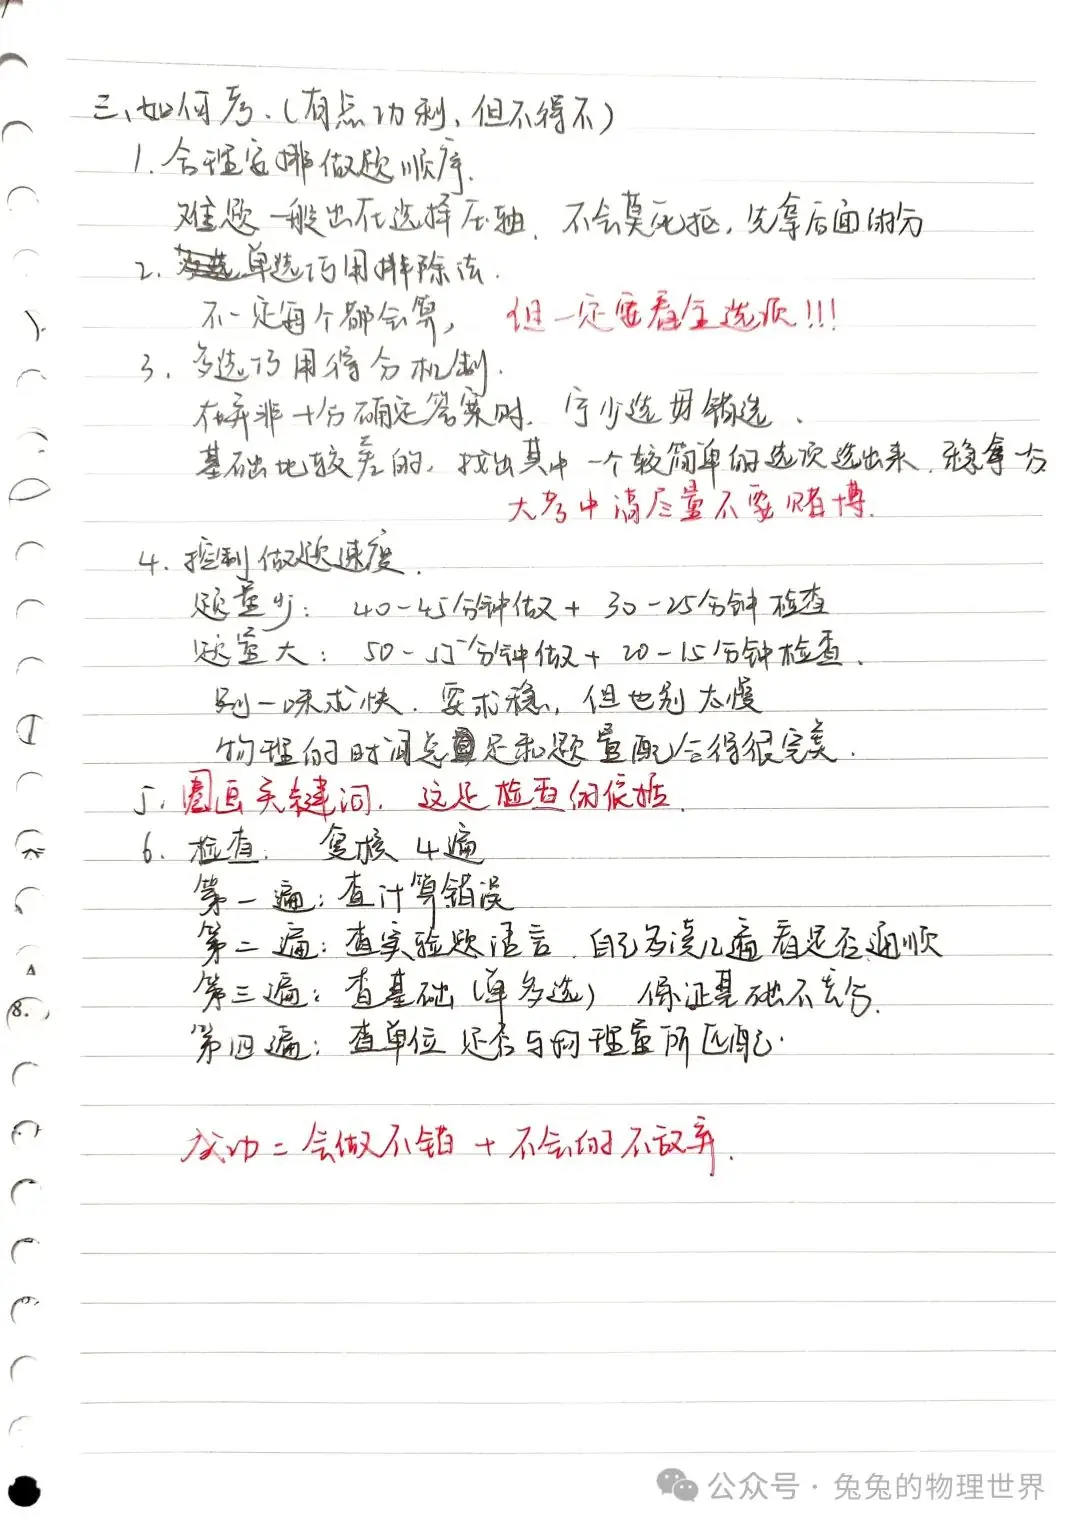 三、如何考.(有点功利,但不得不)
1.合理安排做题顺序.
难题一般出在选择压轴.不会莫死抠,先拿后面的分
2.单选巧用排除法.
不一定每个都会算,但一定要看全选项!!!
3.多选巧用得分机制.
在并非十分确定答案时.宁少选毋错选.
基础比较差的,找出其中一个较简单的选项选出来.稳拿一分
大考中请尽量不要赌博.
4.控制做题速度.
题量少:40-45分钟做+30-25分钟检查
题量大:50-55分钟做+20-15分钟检查.
别一味求快.要求稳,但也别太慢
物理的时间总是和题量配合得很完美.
5.圈画关键词.这是检查的依据.
6.检查.复核4遍
第一遍:查计算错误
第二遍:查实验题语言.自己多读几遍看是否通顺
第三遍:查基础(单多选)保证基础不丢分.
第四遍:查单位是否与物理量所匹配.
成功=会做不错+不会的不放弃.
8.
公众号·兔兔的物理世界